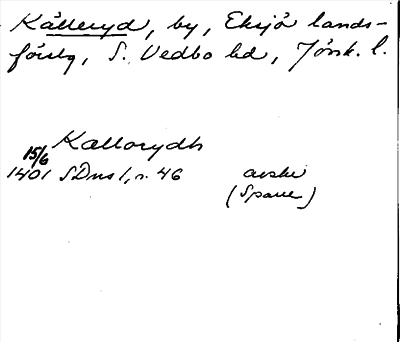 Källeryd, by, Eksjö lands-
förslg, S. Vedbo hd, Jönk. l.
Kallorydh
15/6
1401 SDns 1, s. 46 avskr
(Sparre)